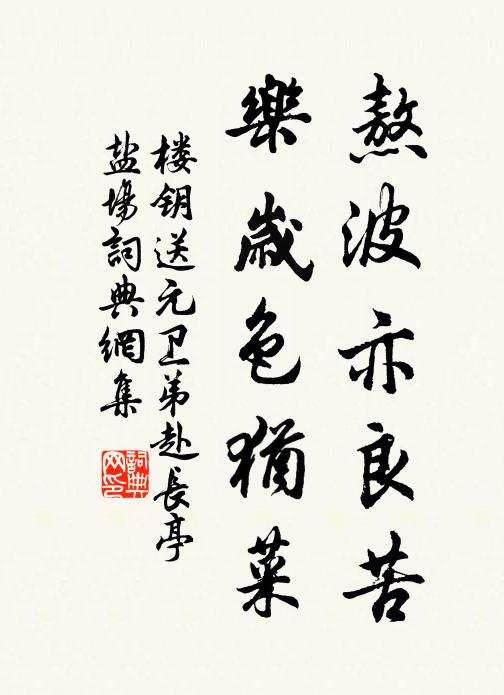 熬波亦良苦
樂歲色猶菜
楼钥送元卫弟赴長亭
盐場詞典網集
詞典
网印